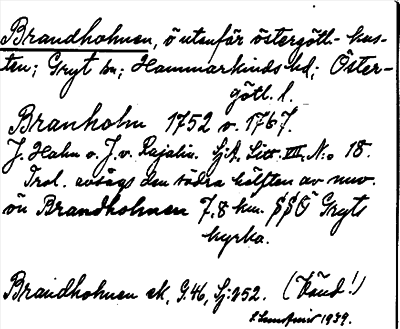 Brandholmen, ö utanför östergötl.-kus-
ten; Gryt sn; Hammarkinds hd; Öster-
götl. l.
Branholm 1752 o. 1767.
J. Hahn o. J. v. Rajalin. SjA, Litt. VII, No 18.
Trol. avsågs den södra hälften av nuv.
ön Brandholmen 7,8 km. SSÖ Gryts
kyrka.
Brandholmen ek, G.46, Sj:252. (Känd!)
1939.